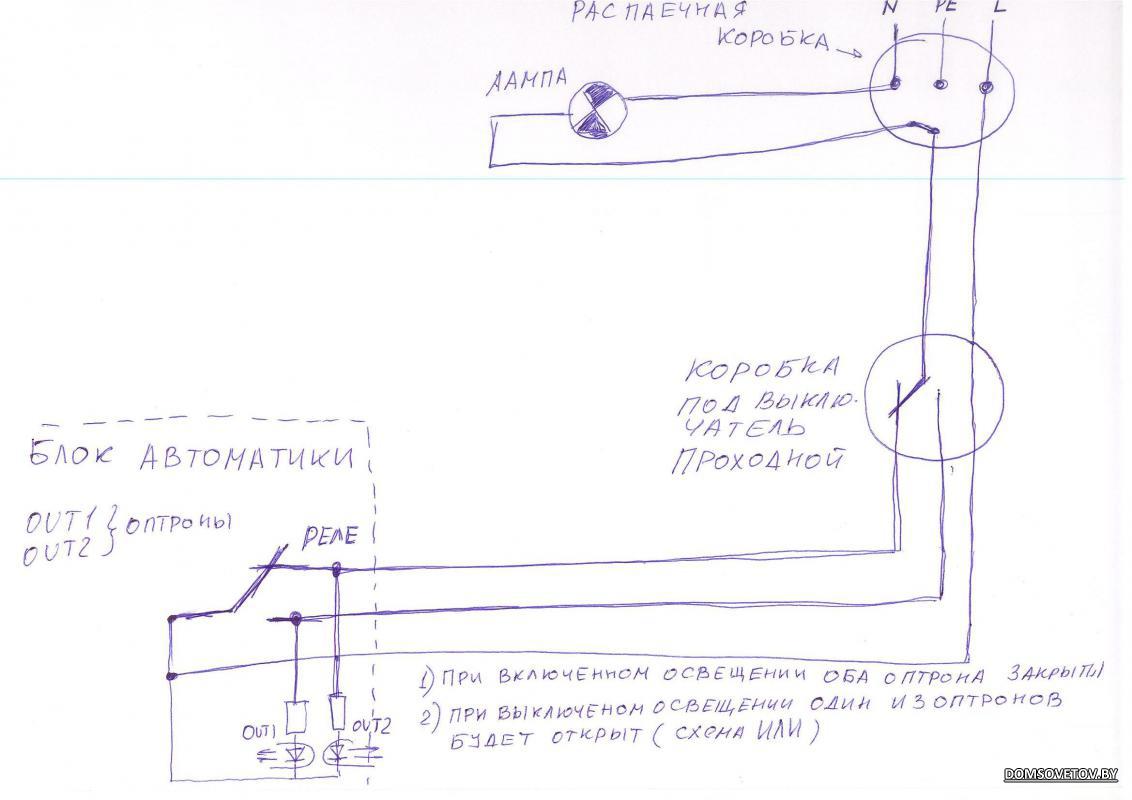 РАСПАЕЧНАЯ
КОРОБКА
N PE L
ЛАМПА
КОРОБКА
ПОД ВЫКЛЮ-
ЧАТЕЛЬ
ПРОХОДНОЙ
БЛОК АВТОМАТИКИ
OUT1 } ОПТРОНЫ
OUT2
РЕЛЕ
1) ПРИ ВКЛЮЧЕННОМ ОСВЕЩЕНИИ ОБА ОПТРОНА ЗАКРЫТЫ
2) ПРИ ВЫКЛЮЧЕНОМ ОСВЕЩЕНИИ ОДИН ИЗ ОПТРОНОВ
БУДЕТ ОТКРЫТ (СХЕМА ИЛИ)
OUT1
OUT2
DOMSOVETOV.BY